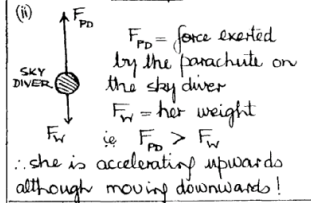 (ii)
F_PD
F_PD = force exerted
by the parachute on
the sky diver
SKY
DIVER
F_W = her weight
F_W
ie F_PD > F_W
∴ she is accelerating upwards
although moving downwards!